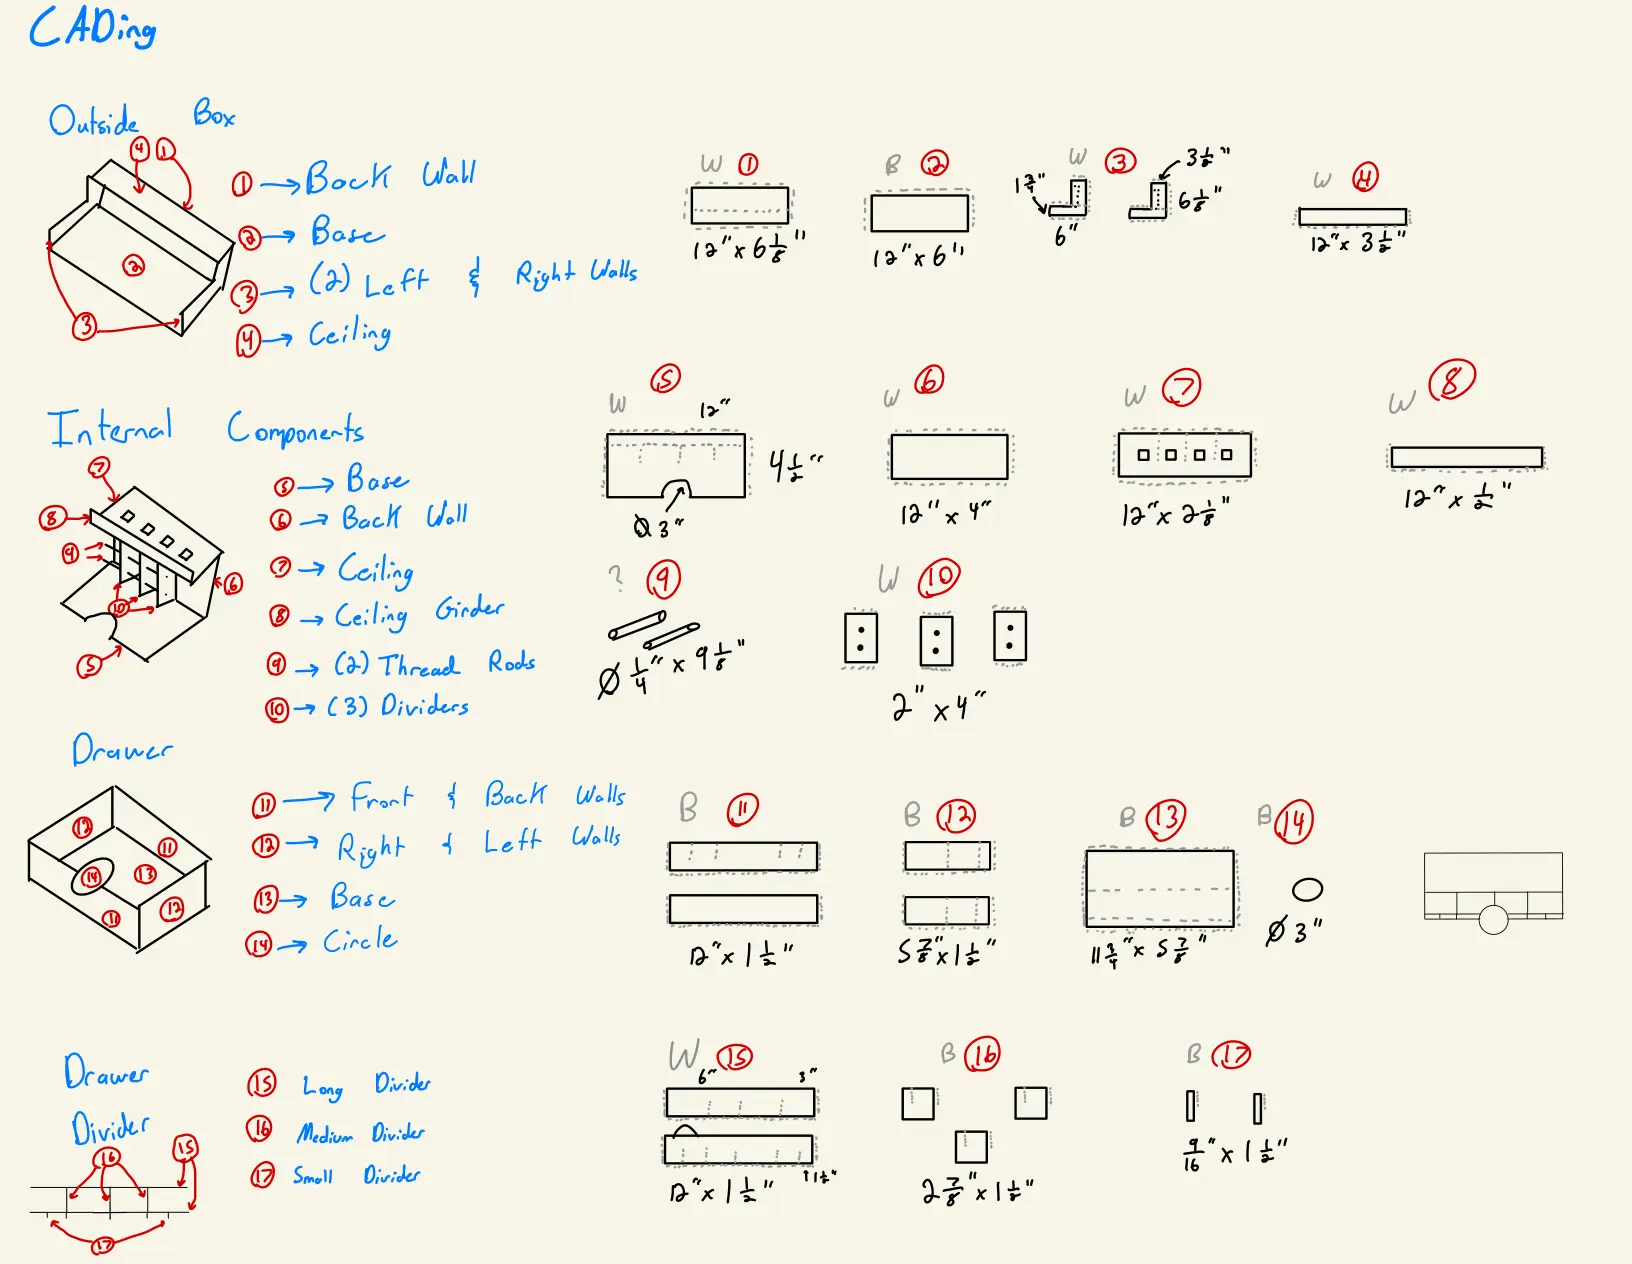 CADing
Outside Box
4 1
1 → Back Wall
2 → Base
3 → (2) Left & Right Walls
4 → Ceiling
2
3
W 1
12" x 6 1/8"
B 2
12" x 6"
W 3
3 1/2"
1 3/4"
6 1/8"
6"
W 4
12" x 3 1/2"
Internal Components
7
8
9
10
6
5
5 → Base
6 → Back Wall
7 → Ceiling
8 → Ceiling Girder
9 → (2) Thread Rods
10 → (3) Dividers
W 5
12"
4 1/2"
Ø 3"
W 6
12" x 4"
W 7
12" x 2 1/8"
W 8
12" x 1/2"
? 9
Ø 1/4" x 9 1/8"
W 10
2" x 4"
Drawer
12
11
14
13
10
12
11 → Front & Back Walls
12 → Right & Left Walls
13 → Base
14 → Circle
B 11
12" x 1 1/2"
B 12
5 7/8" x 1 1/2"
B 13
11 3/4" x 5 7/8"
B 14
Ø 3"
Drawer
Divider
16
15
17
15 Long Divider
16 Medium Divider
17 Small Divider
W 15
6" 3"
1 1/2"
12" x 1 1/2"
B 16
2 7/8" x 1 1/2"
B 17
9/16" x 1 1/2"